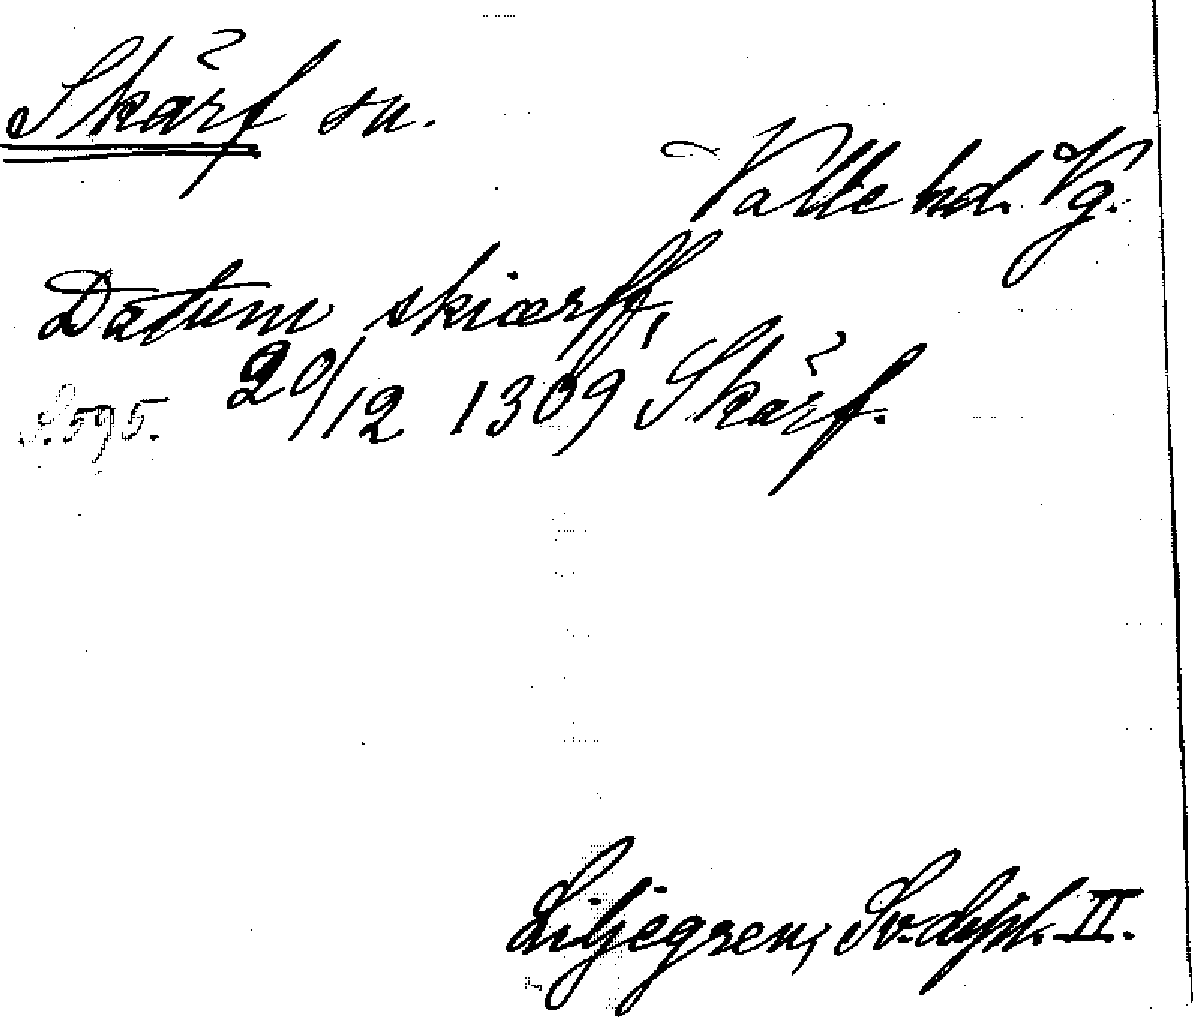 Skärf sn.
Valle hd. Vg.
Datum skiærff,
20/12 1309 Skärf.
S. 595.
Liljegren, Sv. dipl. II.